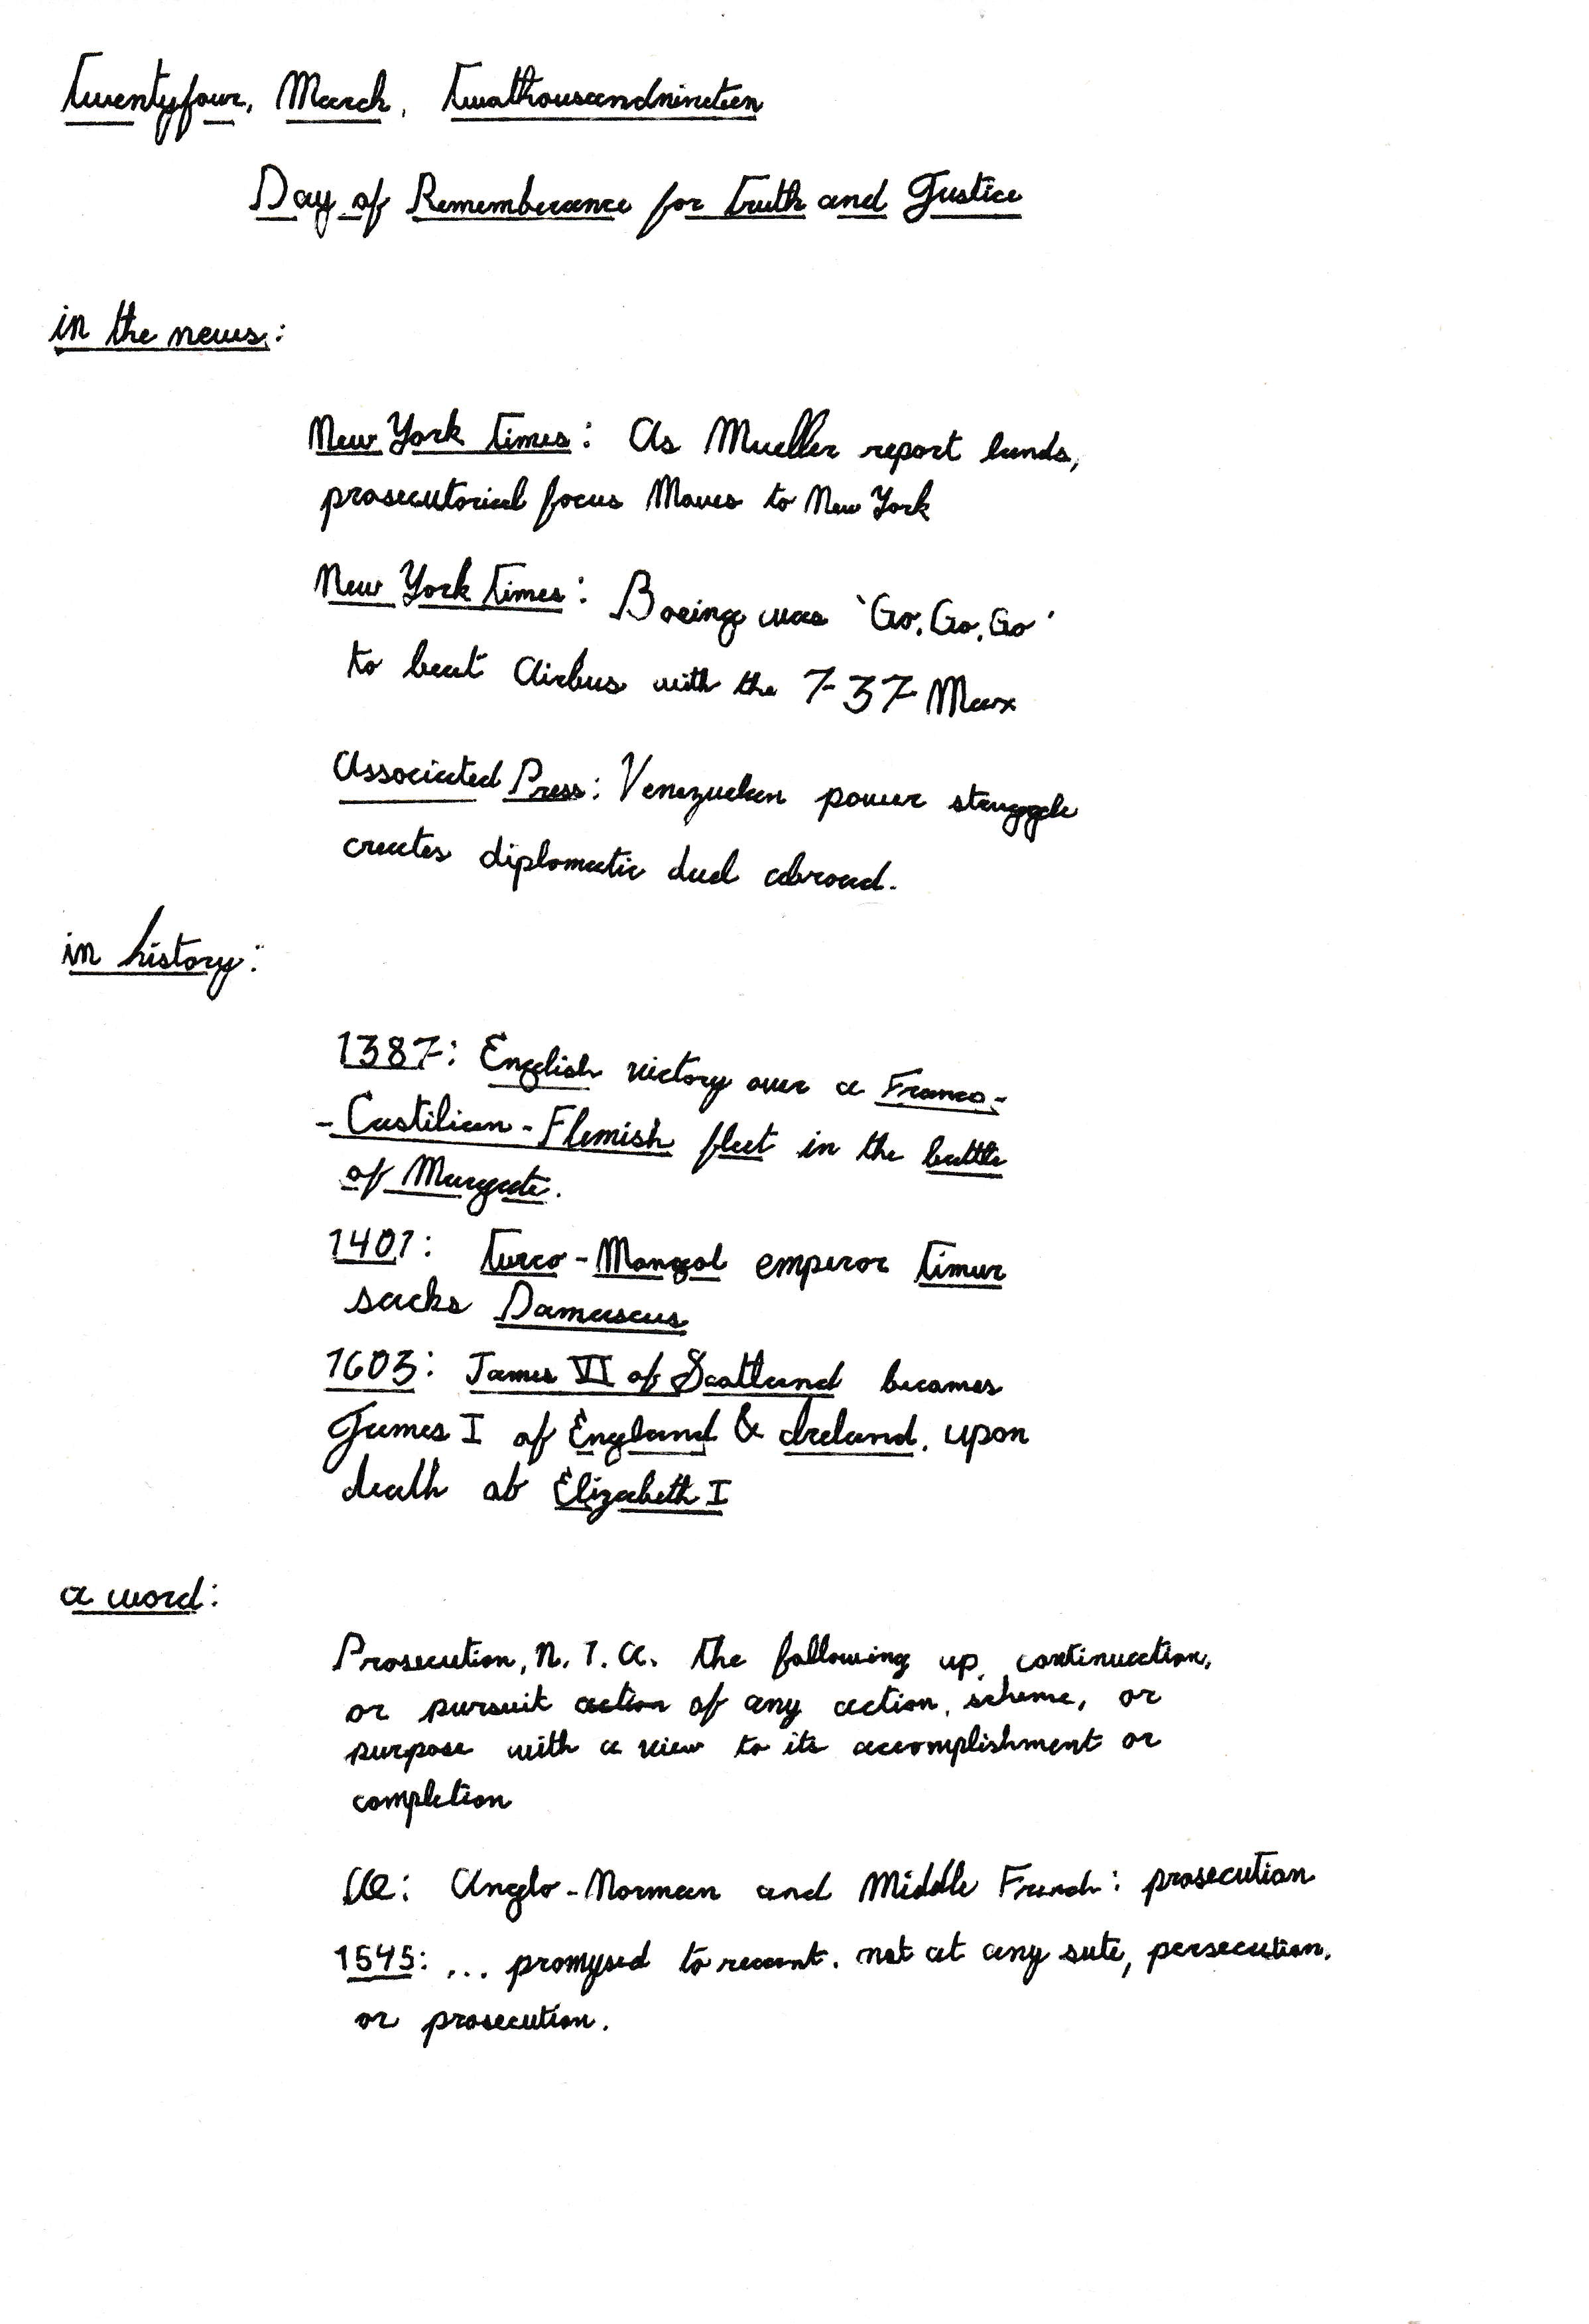 Twentyfour, March, Twothousandnineteen
Day of Rememberance for Truth and Justice
in the news:
New York Times: As Mueller report lands,
prosecutorial focus Moves to New York
New York Times: Boeing was 'Go, Go, Go'
to beat Airbus with the 7-37 Max
Associated Press: Venezuelan power struggle
creates diplomatic duel abroad.
in history:
1387: English victory over a Franco-
-Castilian-Flemish fleet in the battle
of Margate.
1401: Turco-Mongol emperor Timur
sacks Damascus
1603: James VI of Scotland becomes
James I of England & Ireland, upon
death of Elizabeth I
a word:
Prosecution, n. 1. a. The following up, continuation,
or pursuit action of any action, scheme, or
purpose with a view to its accomplishment or
completion
Anglo-Norman and Middle French: prosecution
1545: ... promysed to recant, not at any sute, persecution,
or prosecution.